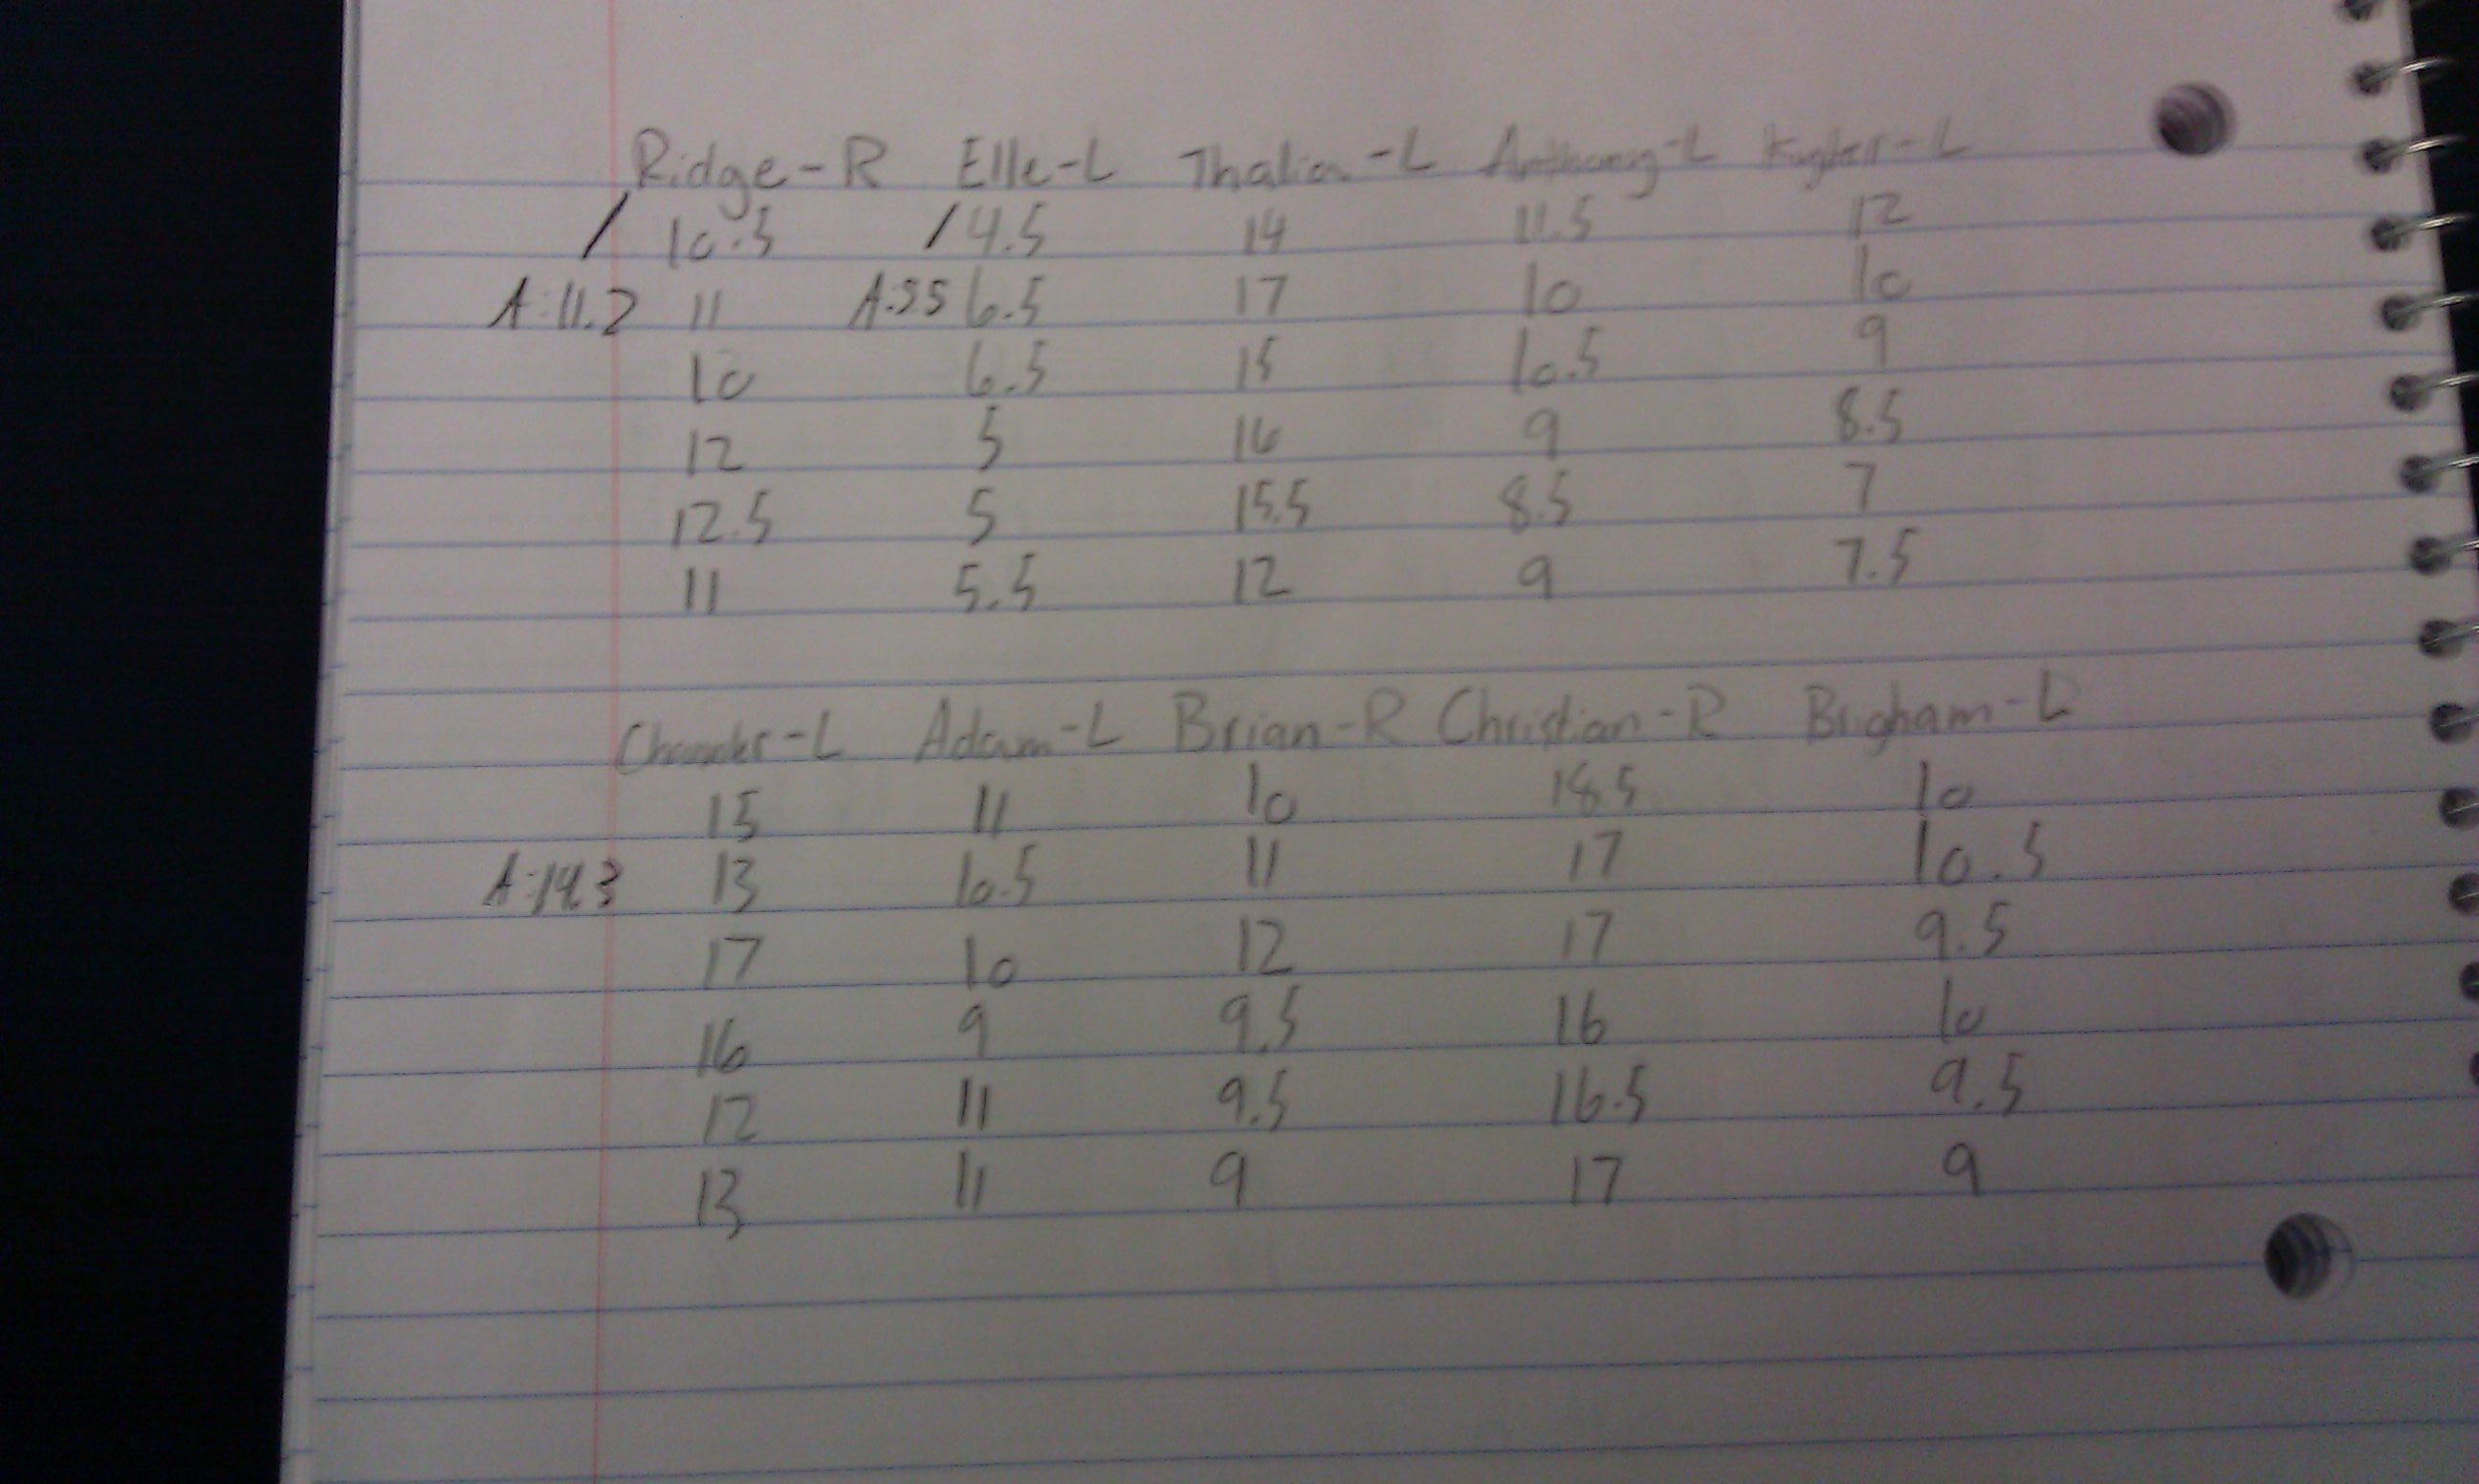 Ridge-R Elle-L Thalia-L Anthony-L Kyler-L
/ 10.5 / 4.5 14 11.5 12
A:11.2 11 A:5.5 6.5 17 10 10
10 6.5 15 10.5 9
12 5 16 9 8.5
12.5 5 15.5 8.5 7
11 5.5 12 9 7.5
Adam-L Brian-R Christian-R Brigham-L
15 11 10 18.5 10
A:14.3 13 10.5 11 17 10.5
17 10 12 17 9.5
16 9 9.5 16 10
12 11 9.5 16.5 9.5
13 11 9 17 9